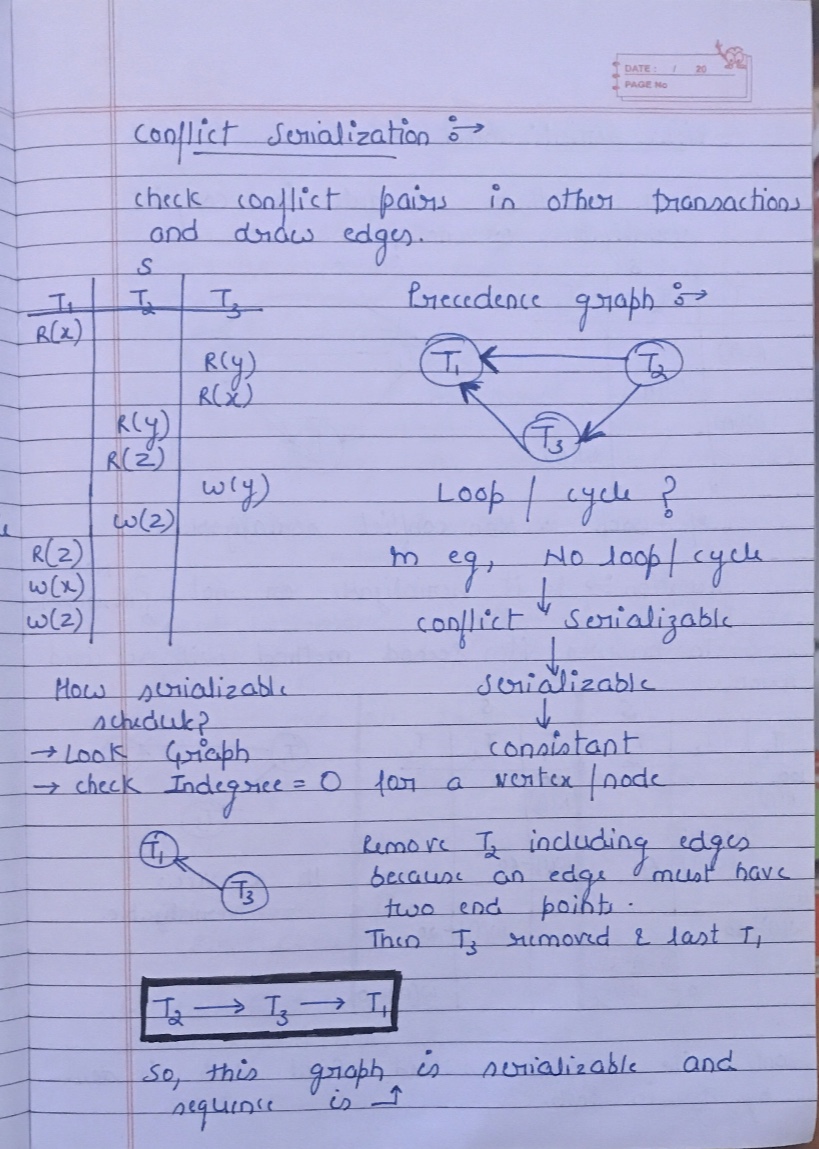 DATE: / 20
PAGE No
Conflict Serialization :→
check conflict pairs in other transactions
and draw edges.
S
T₁ T₂ T₃
R(x)
R(y)
R(x)
R(y)
R(z)
W(y)
W(z)
R(z)
W(x)
W(z)
Precedence graph :→
T₁ T₂
T₃
Loop / cycle ?
In eg, No loop/cycle
↓
conflict serializable
↓
serializable
↓
consistant
How serializable
schedule?
→ Look Graph
→ check Indegree = 0 for a vertex/node
T₁
T₃
Remove T₂ including edges
because an edge must have
two end points.
Then T₃ removed & last T₁
T₂ → T₃ → T₁
So, this graph is serializable and
sequence is ↑